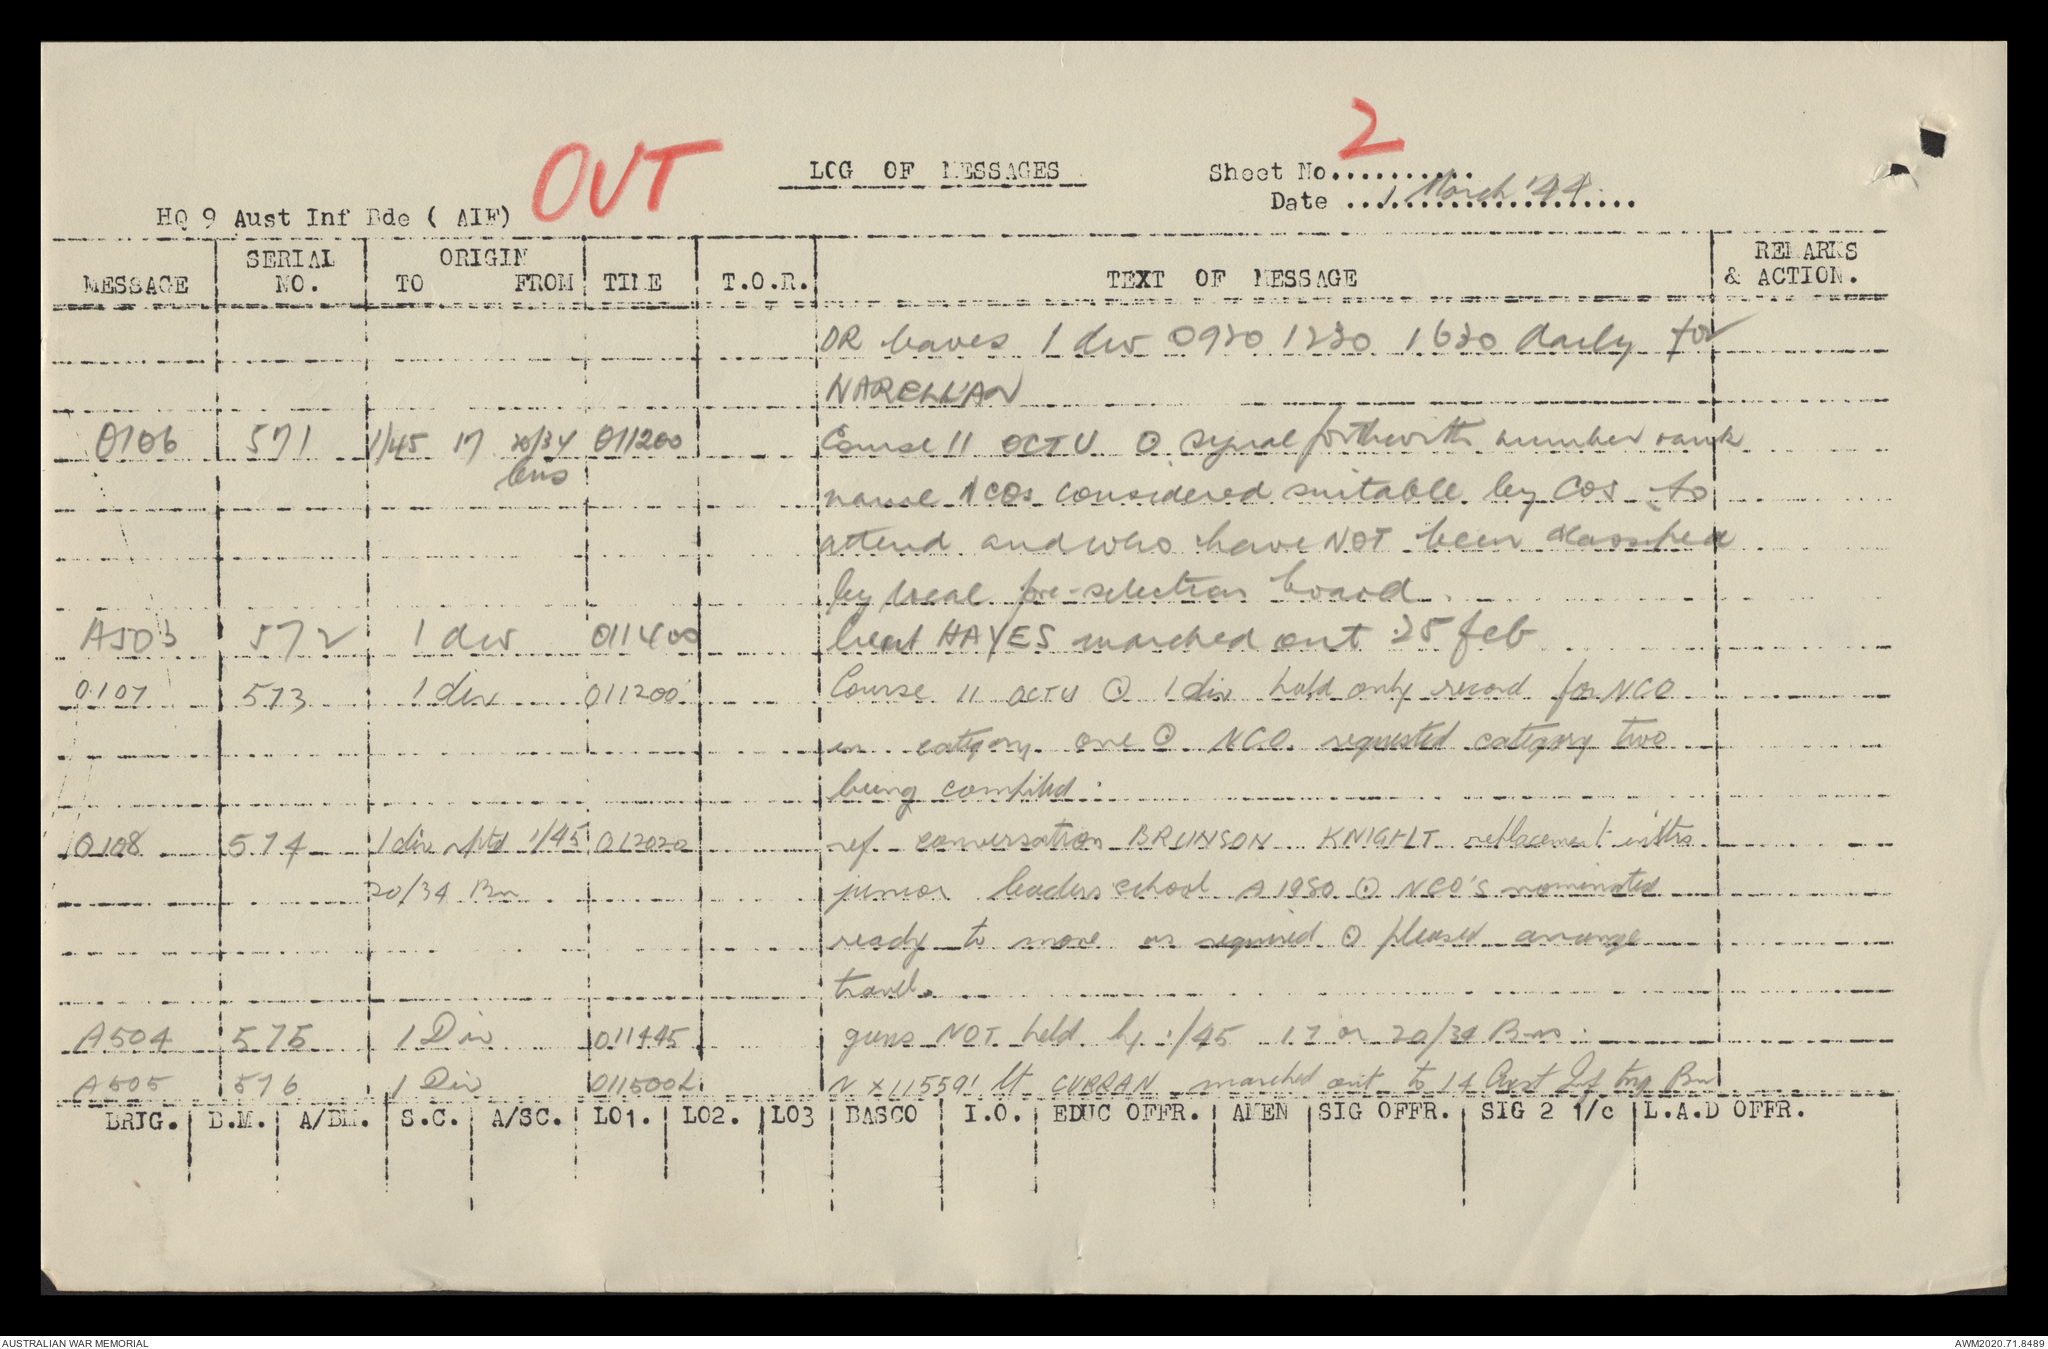 OUT
LOG OF MESSAGES
Sheet No.......... 2
Date ... 1 March '44
HQ 9 Aust Inf Bde ( AIF)
MESSAGE SERIAL NO. ORIGIN TO FROM TIME T.O.R. TEXT OF MESSAGE REMARKS & ACTION.
DR leaves 1 div 0930 1230 1630 daily for
NARELLAN
O106 571 1/45 17 20/34 011200 Course 11 OCTU ⊙ signal forthwith number rank
bns name NCOs considered suitable by COs to
attend and who have NOT been classified
by local pre-selection board.
A503 572 1 div 011400 Lieut HAYES marched out 25 feb
O107 573 1 div 011200 Course 11 OCTU ⊙ 1 div hold only record for NCO
in category one ⊙ NCO requested category two
being compiled.
O108 574 1 div rptd 1/45 012020 ref conversation BRUNSON KNIGHT replacement instrs
20/34 Bn junior leaders school A1980 ⊙ NCO'S nominated
ready to move as required ⊙ please arrange
travel.
A504 575 1 Div 011445 guns NOT held by 1/45 17 or 20/34 Bns.
A505 576 1 Div 011500L NX115591 Lt CURRAN marched out to 14 Aust Inf trg Bn
BRIG. B.M. A/BM. S.C. A/SC. LO1. LO2. LO3 BASCO I.O. EDUC OFFR. AMEN SIG OFFR. SIG 2 i/c L.A.D OFFR.
AUSTRALIAN WAR MEMORIAL AWM2020.71.8489